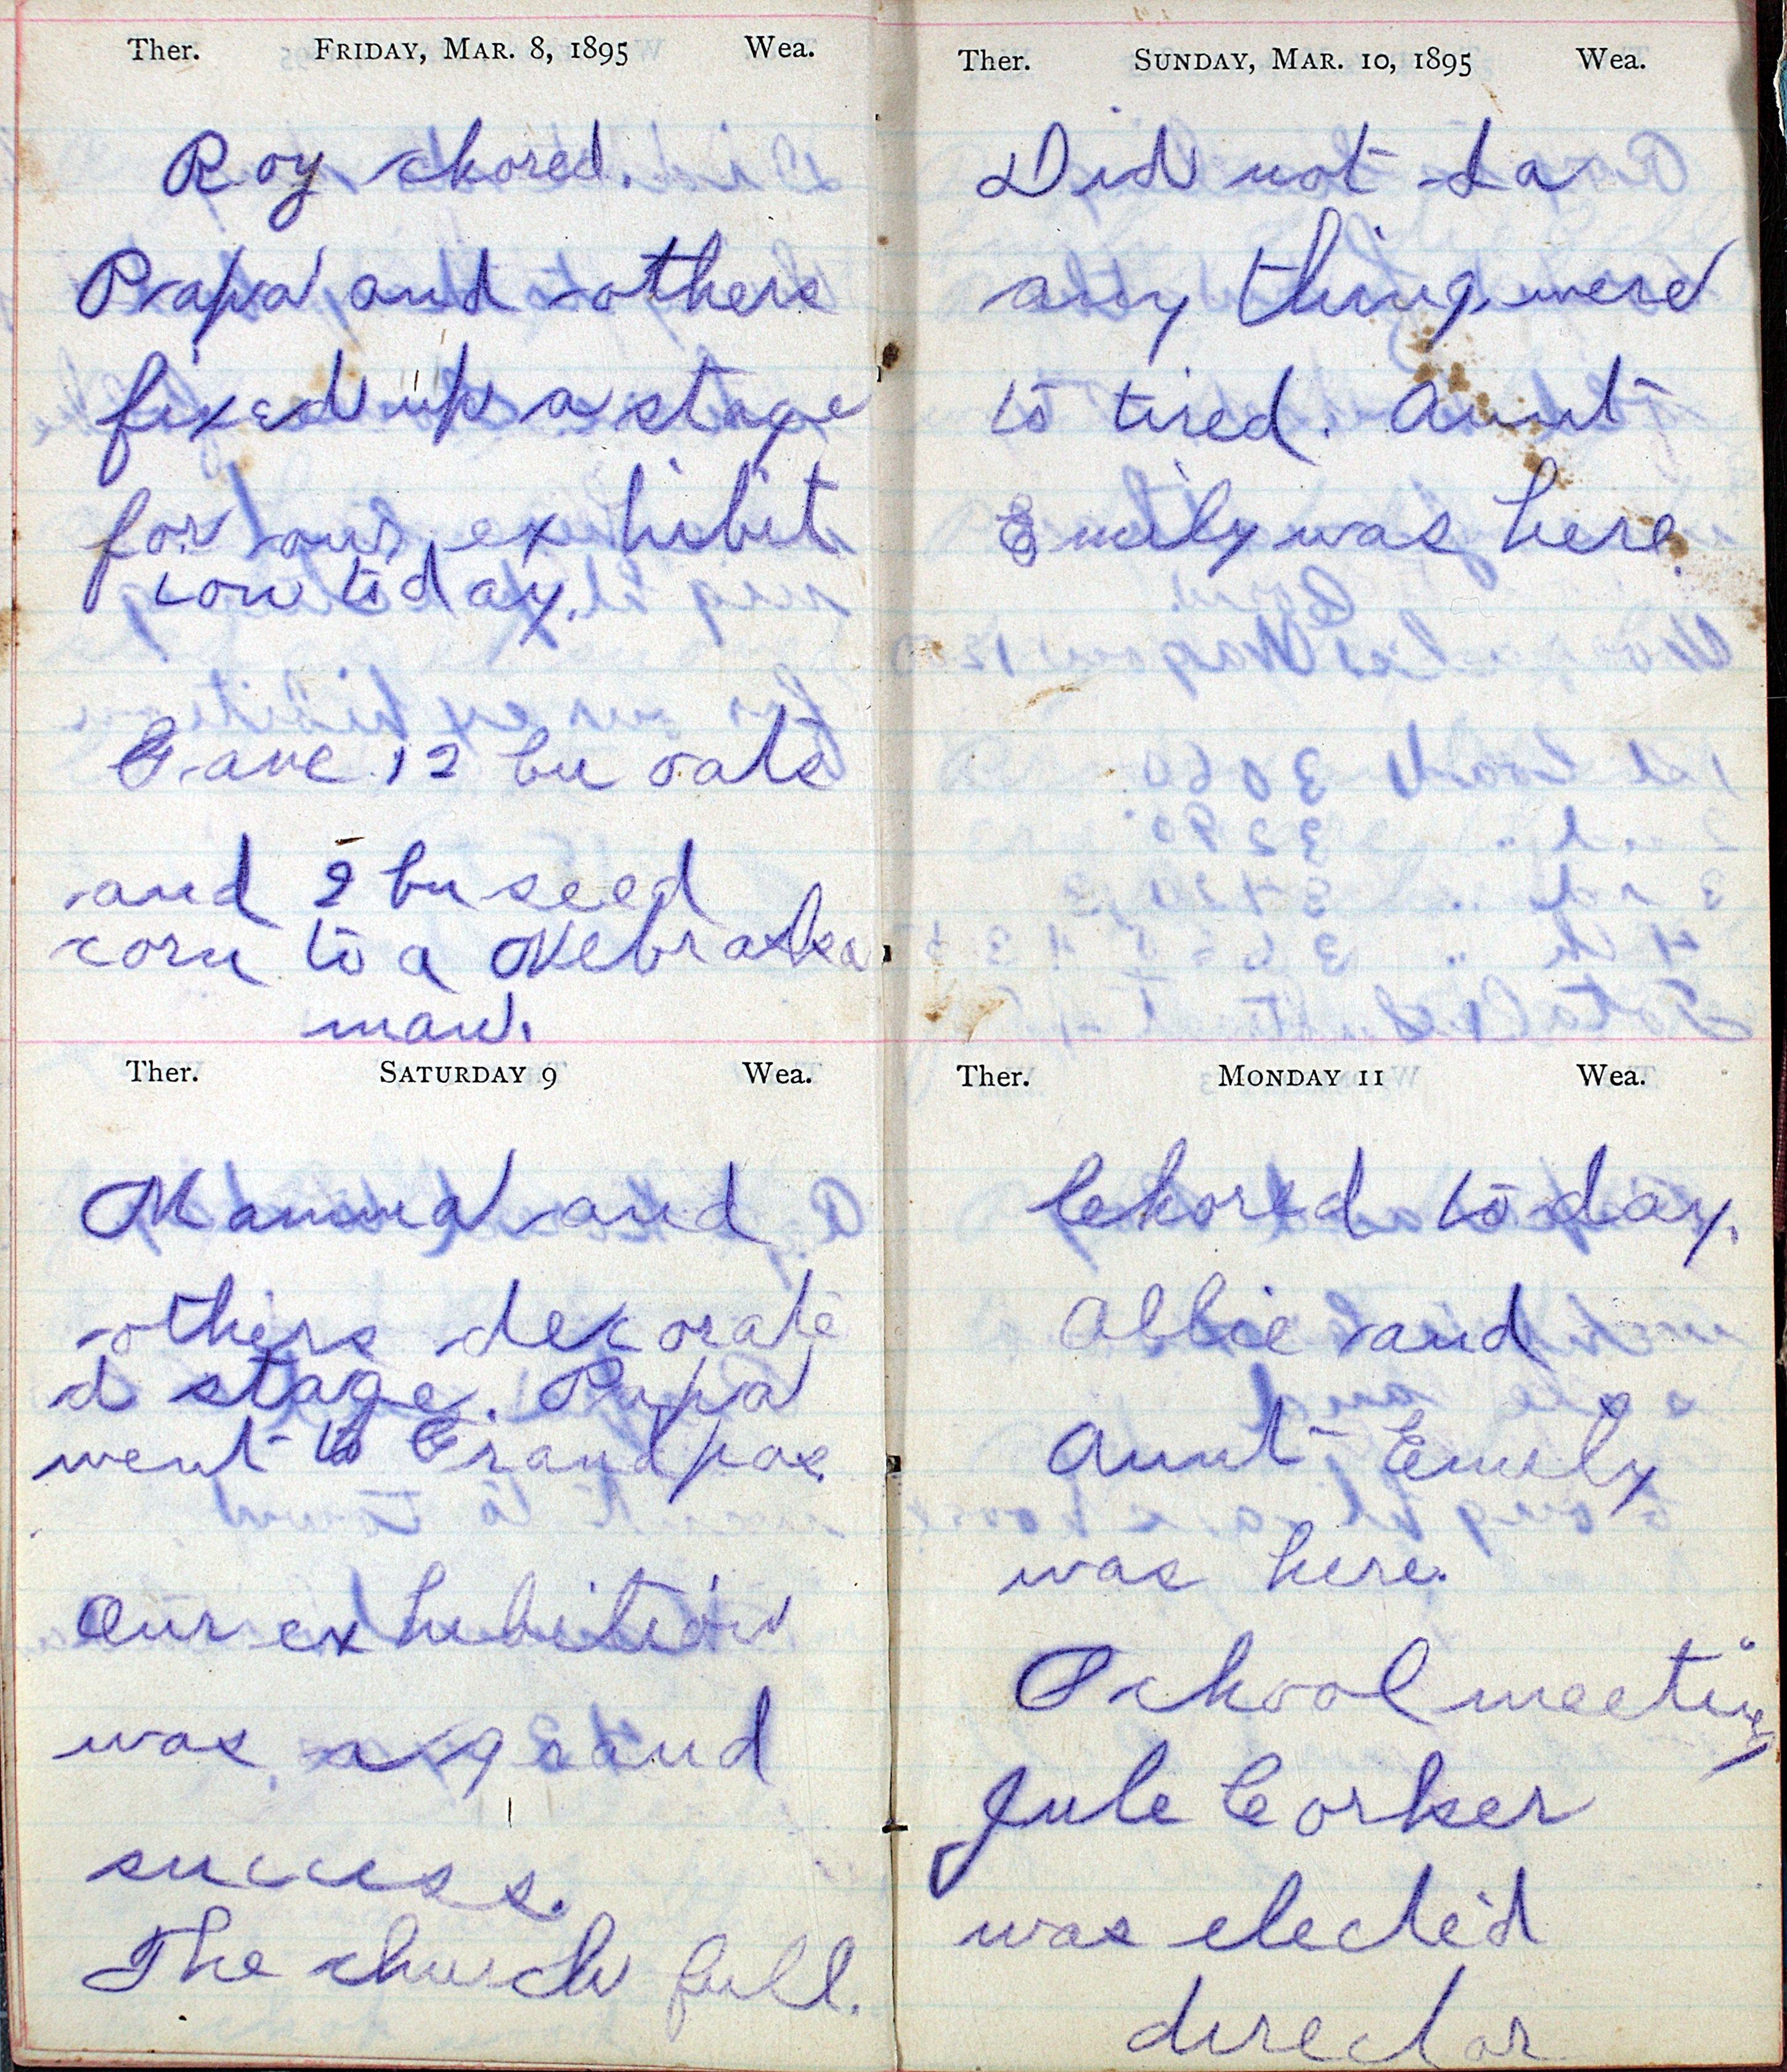 Ther. FRIDAY, MAR. 8, 1895 Wea.
Roy chored.
Papa and others
fixed up a stage
for our exhibit
ion to day.
Gave 12 bu oats
and 2 bu seed
corn to a Nebraska
man.
Ther. SATURDAY 9 Wea.
Mamma and
others decorate
d stage. Papa
went to Grandpas
Our exhibition
was a grand
success.
The church full.
Ther. SUNDAY, MAR. 10, 1895 Wea.
Did not do
any thing were
to tired. Aunt
Emily was here.
Ther. MONDAY 11 Wea.
Chored to day.
Allie and
Aunt Emily
was here.
School meeting
Jule Corker
was elected
director